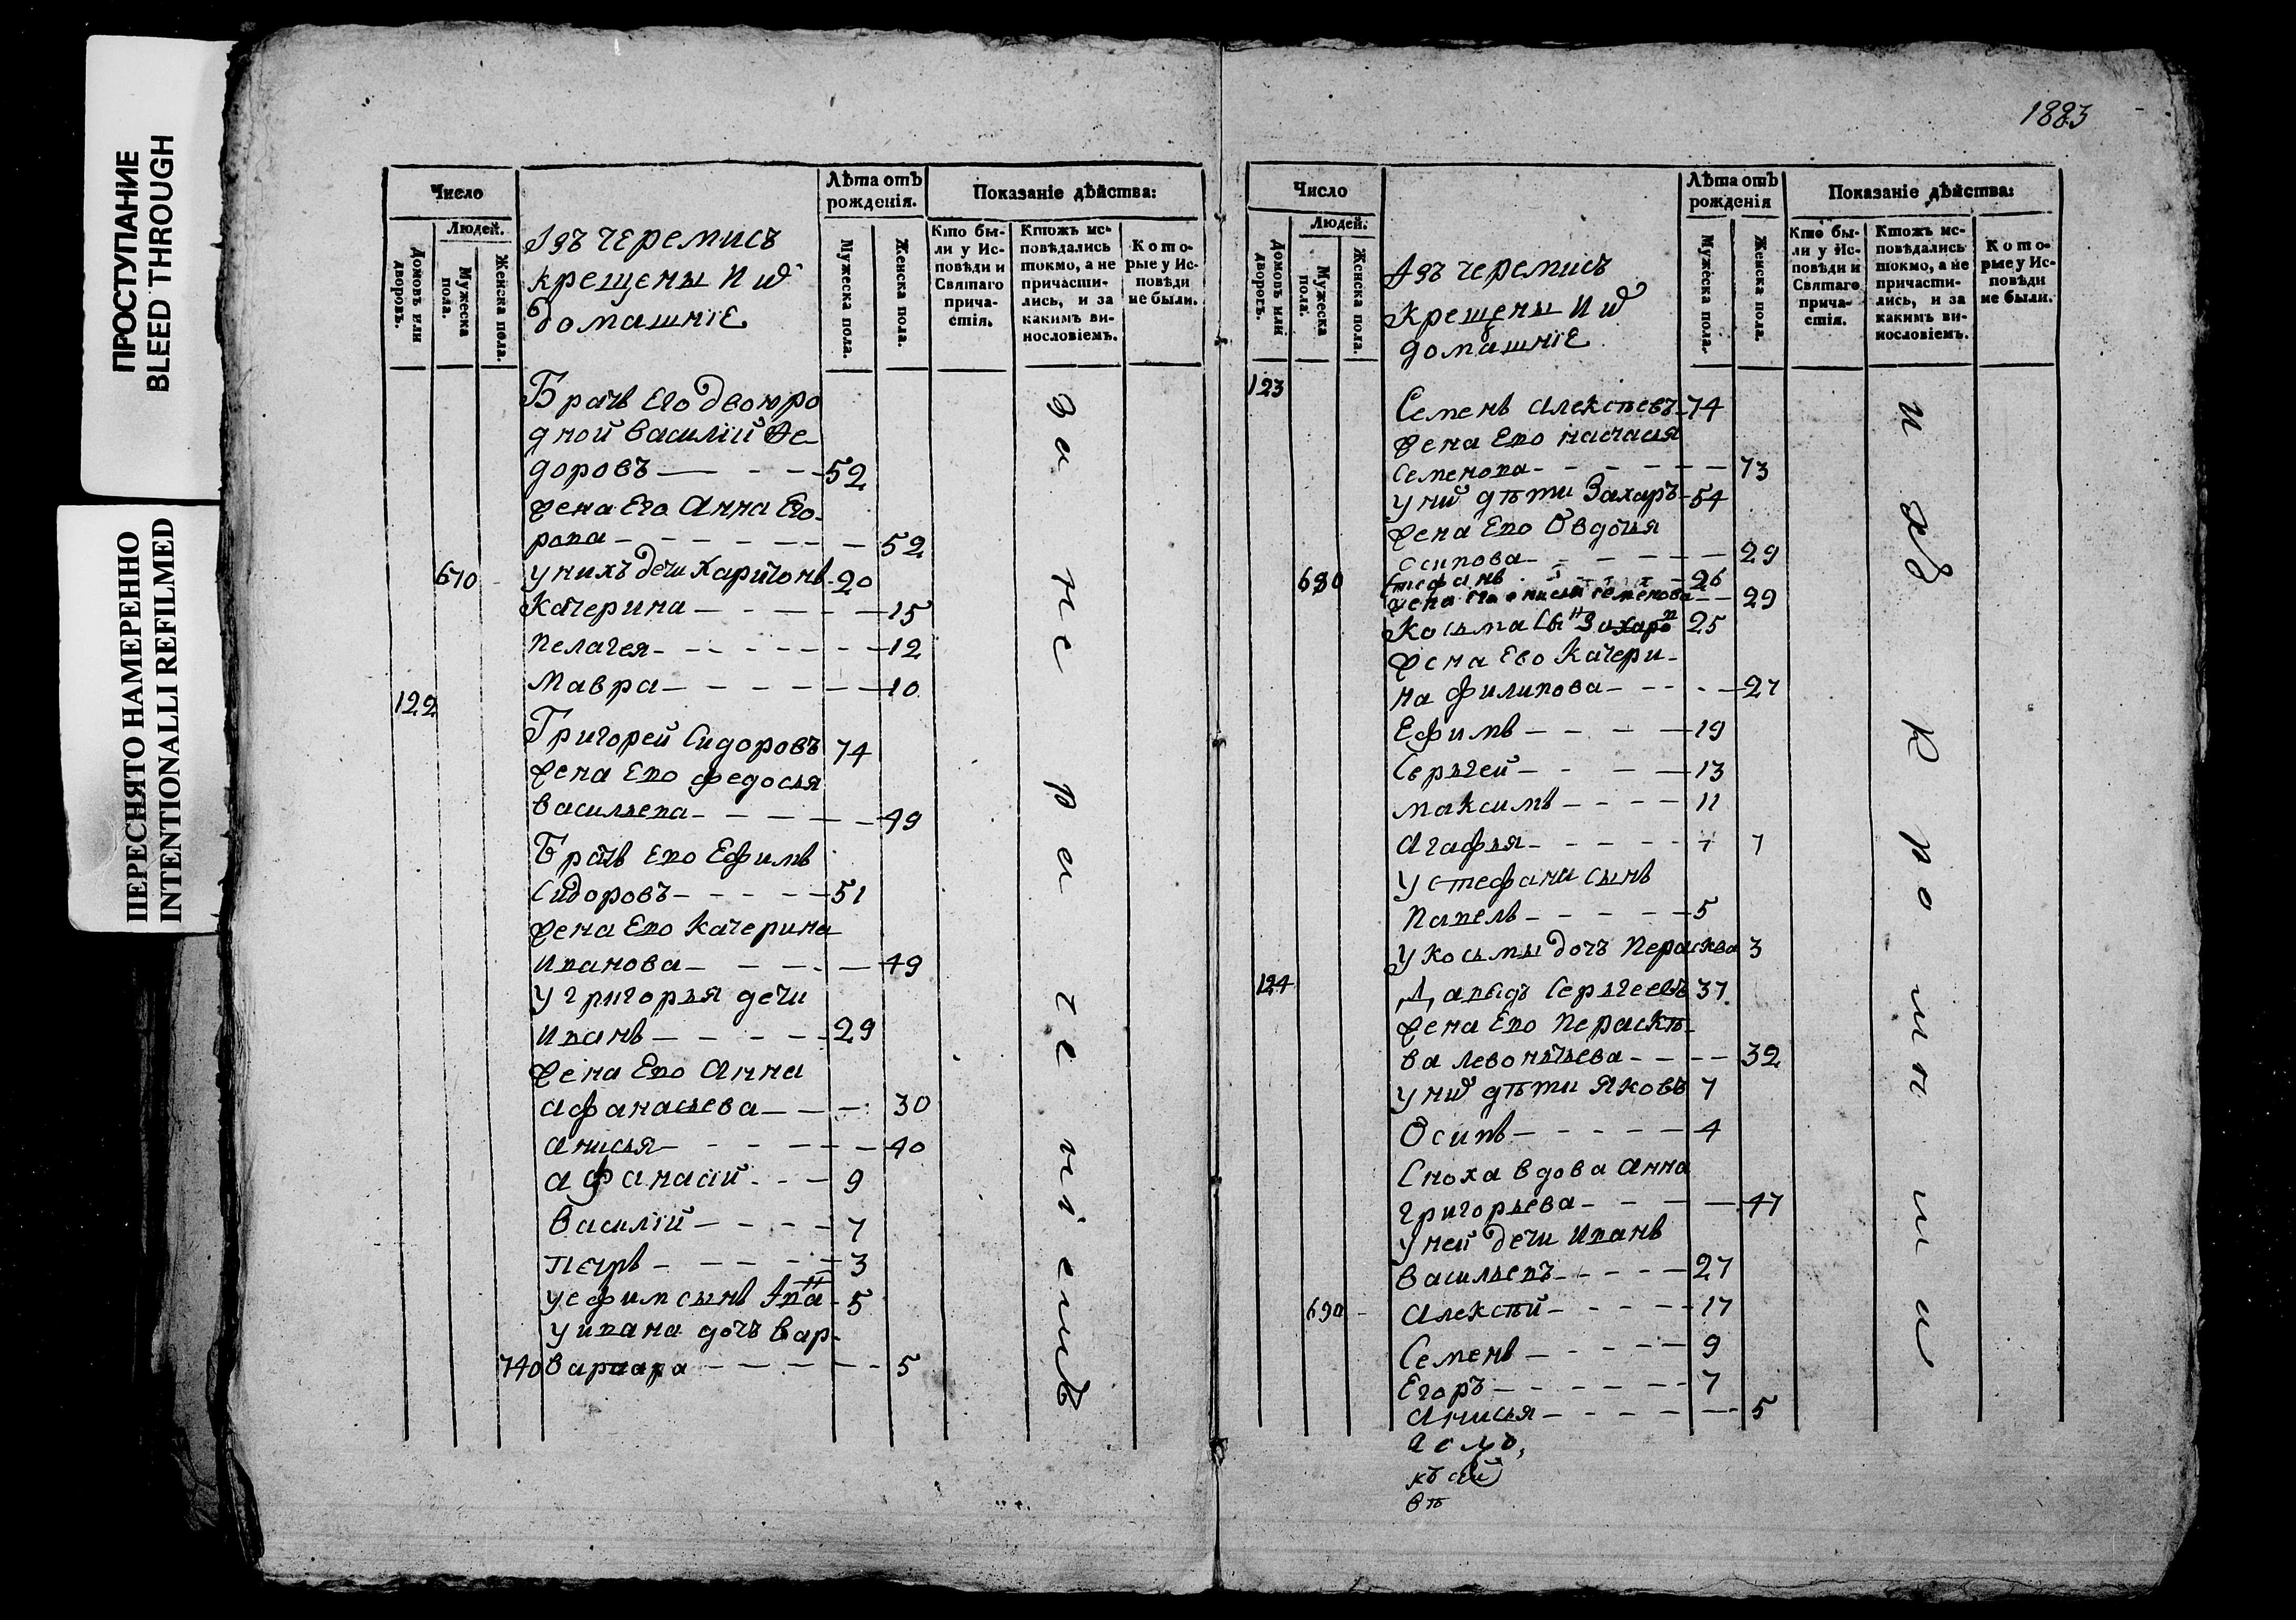 ПРОСТУПАНИЕ
BLEED THROUGH
ПЕРЕСНЯТО НАМЕРЕННО
INTENTIONALLI REFILMED
1883
Число
Людей.
Домовъ или дворовъ.
Мужеска пола.
Женска пола.
Изъ черемисъ
крещены и иѵ
домашніе
Лѣта отъ рожденія.
Мужеска пола.
Женска пола.
Показаніе дѣйства:
Кто были у Исповѣди и Святаго причастія.
Ктожъ исповѣдались токмо, а не причастились, и за какимъ винословіемъ.
Которые у Исповѣди не были.
Братъ Его двоюро
дной Василій Ѳе-
доровъ 52
жена Его Анна Его-
рова 52
670 у нихъ дети Харитонъ 20
Катерина 15
Пелагея 12
Мавра 10
122
Григорей Сидоровъ 74
жена Ево Федосья
Васильева 49
Братъ Ево Ефимъ
Сидоровъ 51
жена Ево Катерина
Иванова 49
у Григорья дети
Иванъ 29
жена Ево Анна
Афанасьева 30
Анисья 40
Афанасій 9
Василій 7
Петръ 3
у Ефима сынъ Ива 5
у Ивана дочь Вар-
740 Варвара 5
за не раченіемъ
Число
Людей.
Домовъ или дворовъ.
Мужеска пола.
Женска пола.
Изъ черемисъ
крещены и иѵ
домашніе
Лѣта отъ рожденія
Мужеска пола.
Женска пола.
Показаніе дѣйства:
Кто были у Исповѣди и Святаго причастія.
Ктожъ исповѣдались токмо, а не причастились, и за какимъ винословіемъ.
Которые у Исповѣди не были.
123
Семенъ Алексѣевъ 74
жена Ево Настасья
Семенова 73
у ниѵ дѣти Захаръ 54
жена Ево Овдотья
Осипова 29
680 Стефанъ 26
жена Семенова 29
Косьма Захаро 25
жена Ево Катери-
на Филипова 27
Ефимъ 19
Серьгей 13
Максимъ 11
Агафья 7 7
у Стефана сынъ
Павелъ 5
у Косьмы дочь Перасква 3
124 Давыдъ Серьгеевъ 37
жена Ево Пераскѣ-
ва Левонтьева 32
у ниѵ дѣти Яковъ 7
Осипъ 4
Сноха вдова Анна
Григорьева 47
у ней дети Иванъ
Васильевъ 27
690 Алексѣй 17
Семенъ 9
Егоръ 7
Анисья 5